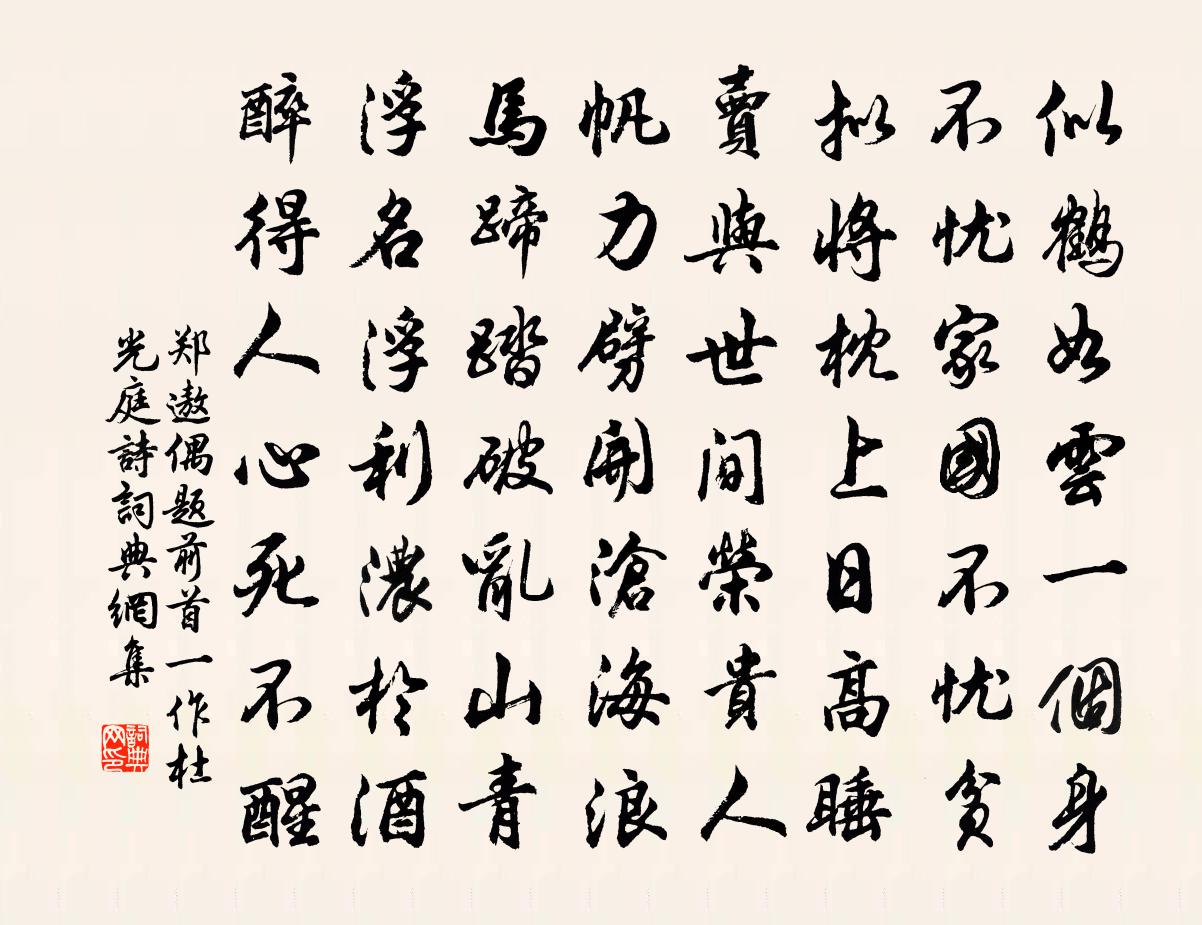 似鶴如雲一個身
不忧家國不忧貧
拟將枕上日高睡
賣與世间榮貴人
帆力劈開滄海浪
馬蹄踏破亂山青
浮名浮利濃於酒
醉得人心死不醒
郑遨偶题前首一作杜
光庭詩詞典網集
詞典網印